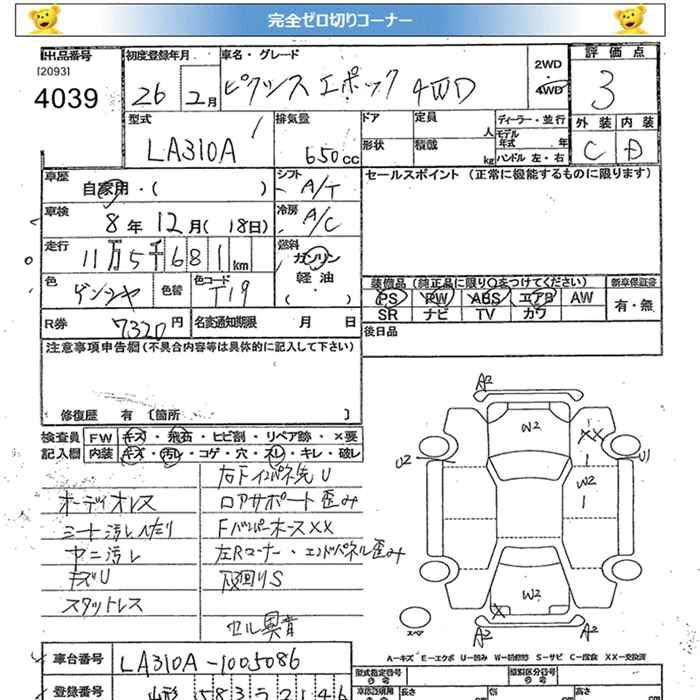 完全ゼロ切りコーナー
出品番号 初度登録年月 車名・グレード 2WD 評価点
[2093] 4WD
4039 26 2月 ピクシス エポック 4WD 3
型式 排気量 ドア 定員 人 ディーラー・並行 外装 内装
LA310A 650cc 形状 積載 kg モデル年式 年 C D
ハンドル 左・右
車歴 シフト セールスポイント (正常に機能するものに限ります)
自家用・( ) A/T
車検 冷房
8年 12月 (18日) A/C
走行 燃料
11万5千681km ガソリン
軽油
色 色替 色コード ( )
T19
装備品 (純正品に限り○をつけてください) 新車保証書
PS PW ABS エアB AW 有・無
SR ナビ TV カワ
R券 7320円 名変通知期限 月 日 後日品
注意事項申告欄(不具合内容等は具体的に記入して下さい)
修復歴 有 〔箇所 〕
検査員 FW キズ・飛石・ヒビ割・リペア跡・×要
記入欄 内装 キズ・汚レ・コゲ・穴・スレ・キレ・破レ
オーディオレス
シート汚レ ヘタリ
ヤニ汚レ
キズU
スタットレス
右Fインパネ先U
ロアサポート歪み
FバンパーホースXX
左Rコーナー・エンドパネル歪み
下回りS
セル異音
A2
W2
XX
U2
U1
W2
1
W2
X
A2
A2
スペア
A-キズ E-エクボ U-凹み W-補修跡 S-サビ C-腐食 XX-交換済
車台番号 LA310A-1005086
型式指定番号 類別区分番号
登録番号 山形 583 う 2146
長さ cm 幅 cm 高さ cm